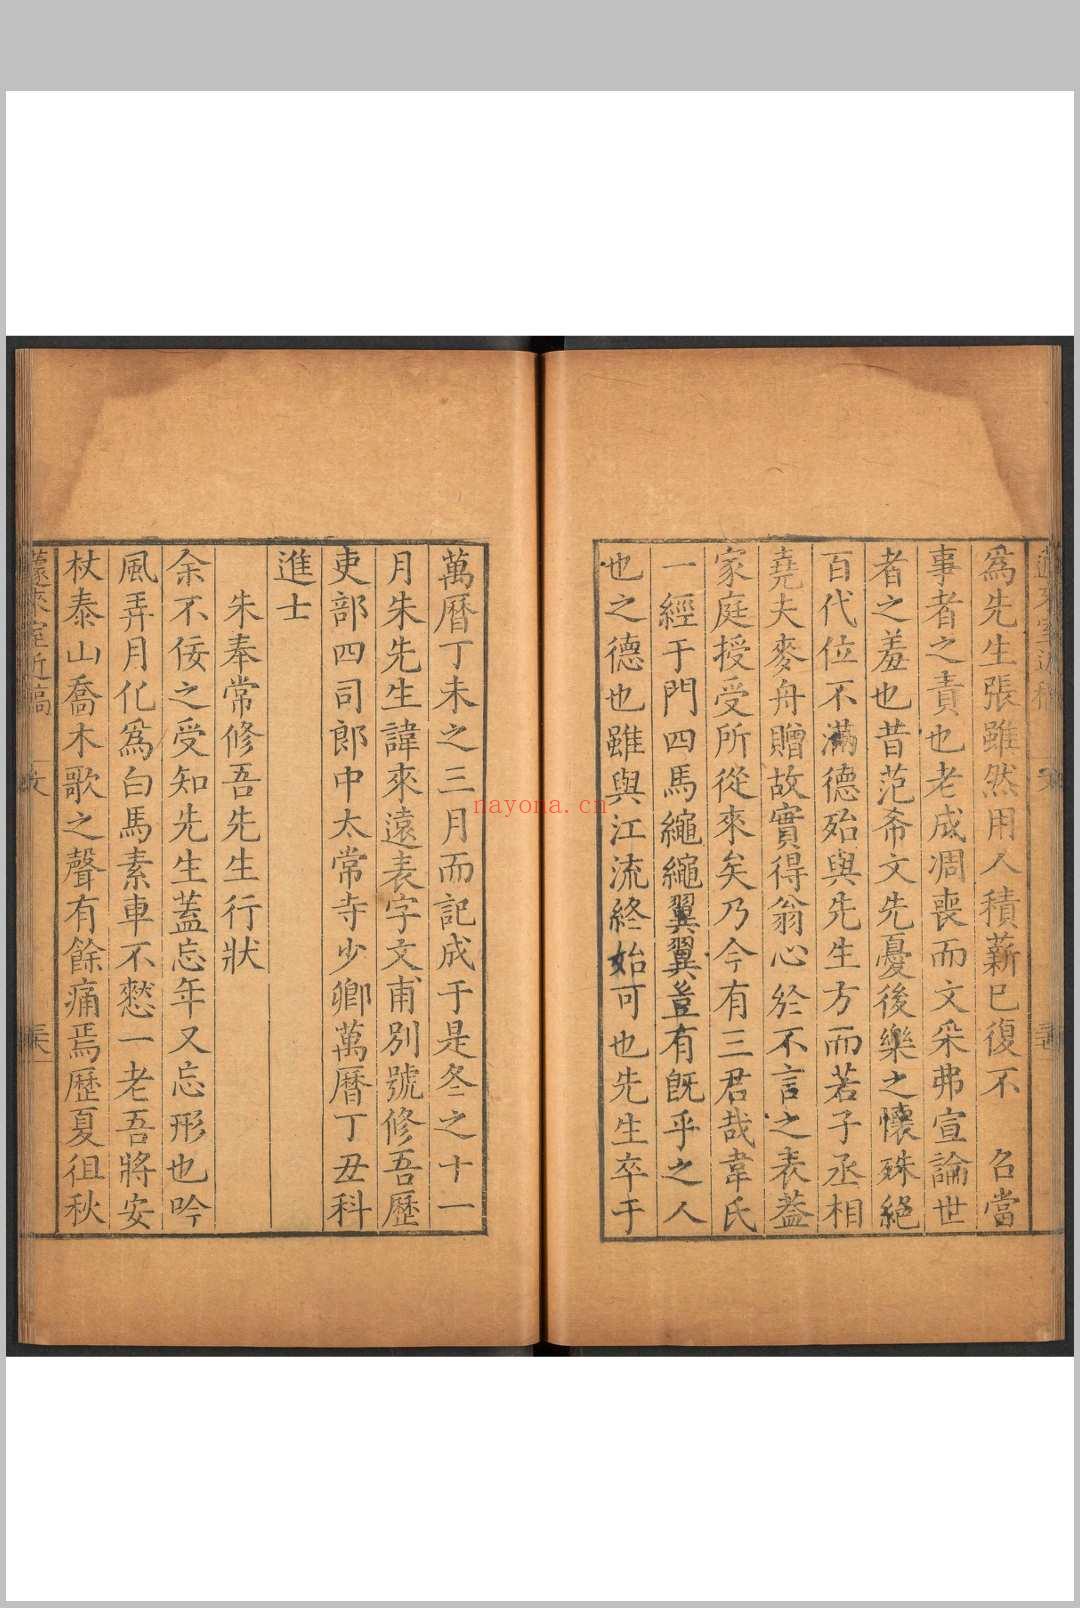 爲先生張雖然用人積薪已復不　召當
事者之責也老成凋喪而文采弗宣論世
者之羞也昔范希文先憂後樂之懷殊絕
百代位不滿德殆與先生方而若子丞相
堯夫麥舟贈故實得翁心於不言之表蓋
家庭授受所從來矣乃今有三君哉韋氏
一經于門四馬繩繩翼翼豈有既乎之人
也之德也雖與江流終始可也先生卒于
萬曆丁未之三月而記成于是冬之十一
月朱先生諱來遠表字文甫別號修吾歷
吏部四司郎中太常寺少卿萬曆丁丑科
進士
朱奉常修吾先生行狀
余不佞之受知先生蓋忘年又忘形也吟
風弄月化爲白馬素車不憖一老吾將安
杖泰山喬木歌之聲有餘痛焉歷夏徂秋
蘧來室近稿
nayona.cn